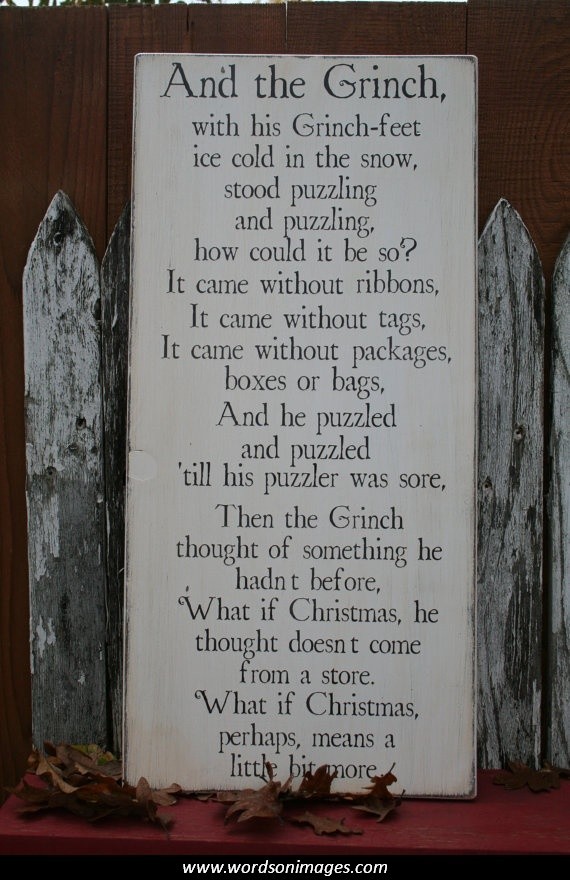 And the Grinch,
with his Grinch-feet
ice cold in the snow,
stood puzzling
and puzzling,
how could it be so?
It came without ribbons,
It came without tags,
It came without packages,
boxes or bags,
And he puzzled
and puzzled
'till his puzzler was sore,
Then the Grinch
thought of something he
hadn t before,
What if Christmas, he
thought doesn t come
from a store.
What if Christmas,
perhaps, means a
little bit more
www.wordsonimages.com